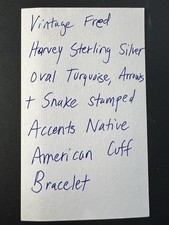 Vintage Fred
Harvey Sterling Silver
Oval Turquoise, Arrows
+ Snake stamped
Accents Native
American Cuff
Bracelet